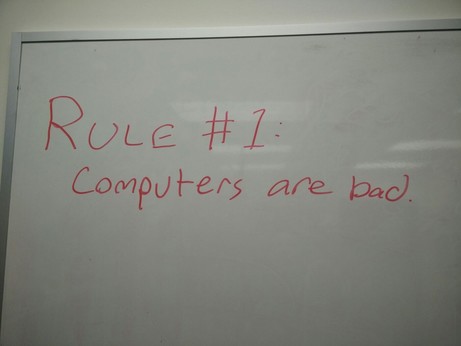 RULE #1:
Computers are bad.